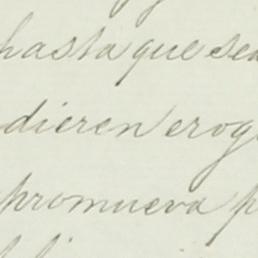 hasta que sea
dieren erog
promueva p